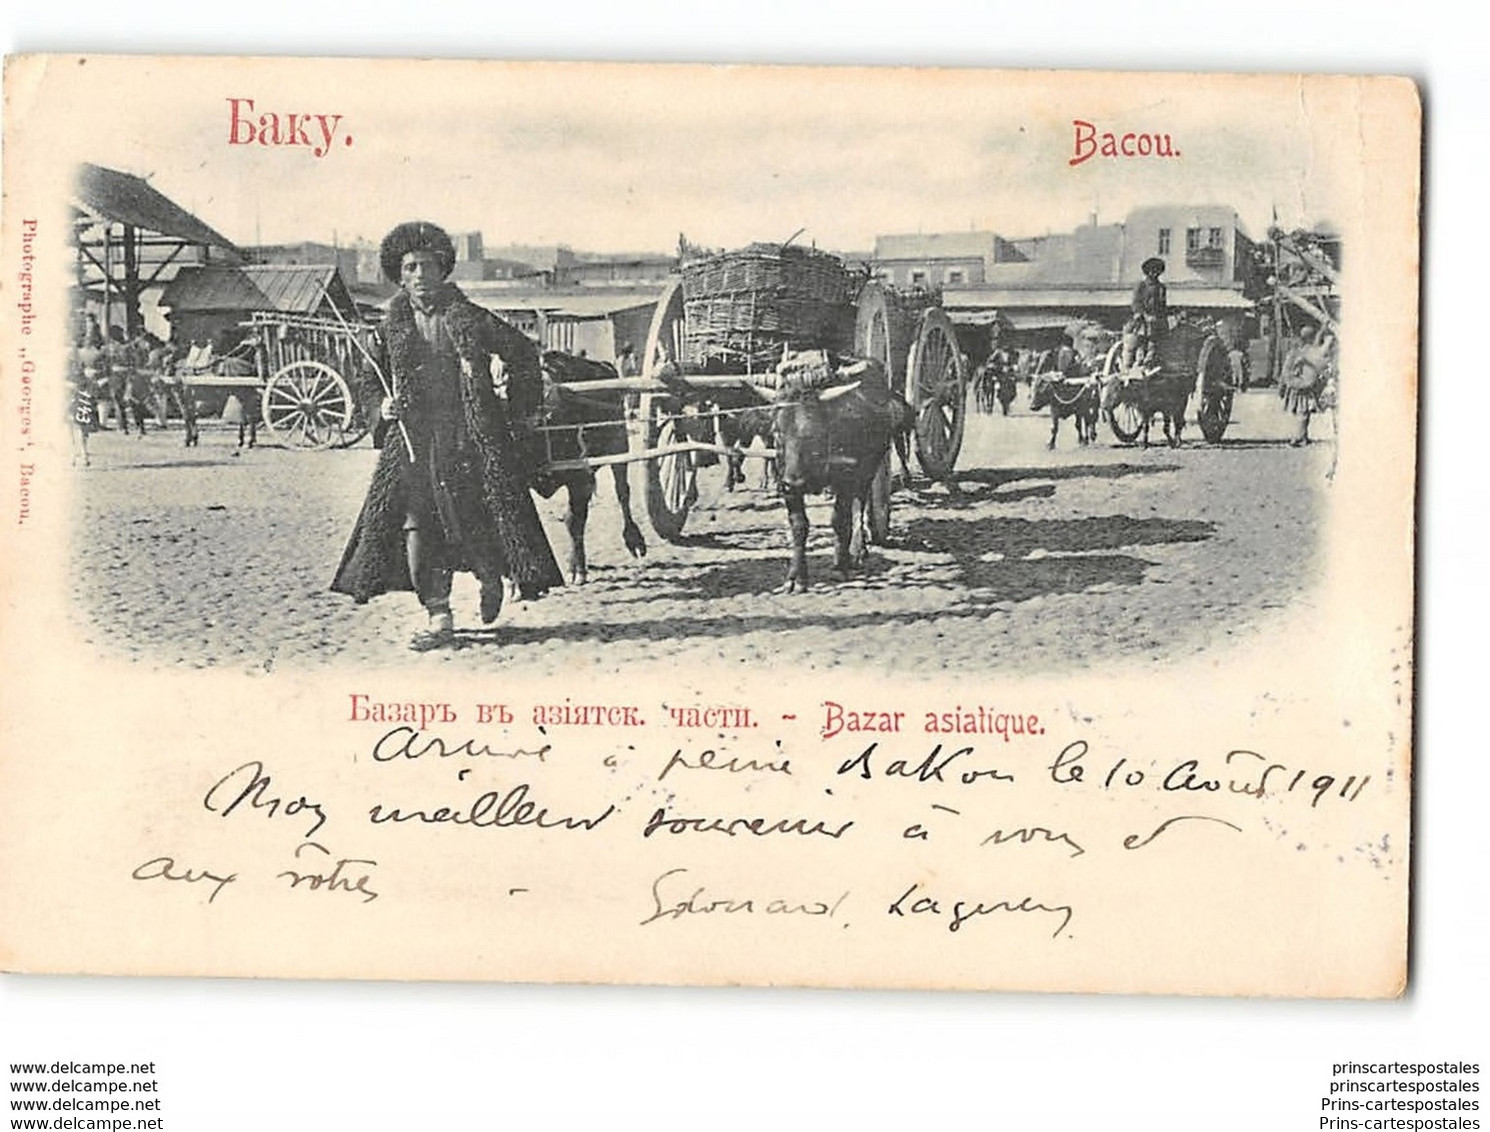 Баку.
Bacou.
Photographe „Georges“, Bacou.
1153
Базаръ въ азіятск. части. - Bazar asiatique.
Arrivé à peine Bakou le 10 Août 1911
Mon meilleur souvenir à vous et
aux vôtres -
Edouard
www.delcampe.net
www.delcampe.net
www.delcampe.net
www.delcampe.net
prinscartespostales
prinscartespostales
Prins-cartespostales
Prins-cartespostales